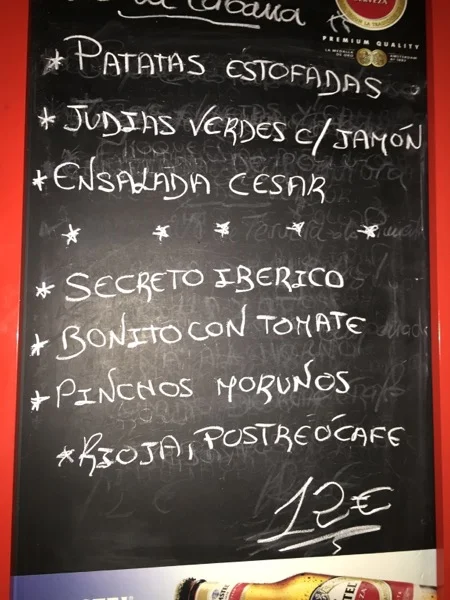 La Cabaña
CERVEZA
PREMIUM QUALITY
* PATATAS ESTOFADAS
* JUDIAS VERDES C/ JAMÓN
* ENSALADA CESAR
* * * * *
* SECRETO IBERICO
* BONITO CON TOMATE
* PINCHOS MORUÑOS
* RIOJA, POSTRE Ó CAFE
12€